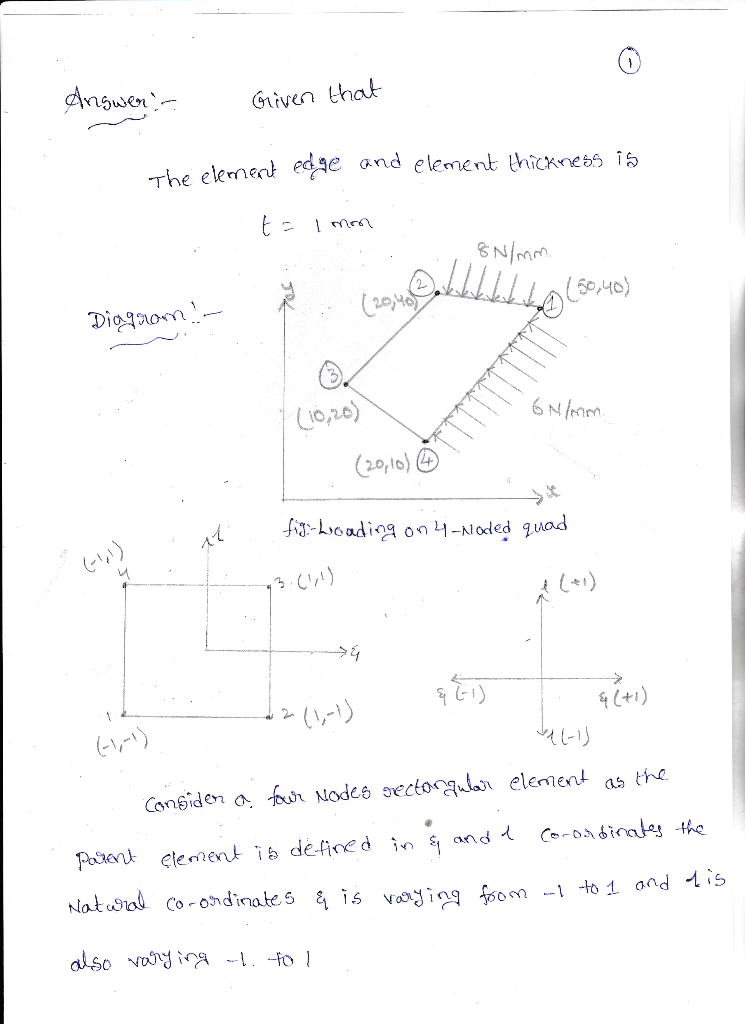 1
Answer:- Given that
The element edge and element thickness is
t = 1 mm
8 N/mm
y
2
(20,40)
1
(50,40)
Diagram:-
3
(10,20)
6 N/mm
(20,10) 4
x
fig:-Loading on 4-Noded quad
η
(-1,1)
4
3 (1,1)
η (+1)
ξ
ξ (-1)
ξ (+1)
1
2 (1,-1)
(-1,-1)
η (-1)
Consider a four Nodes rectangular element as the
Parent element is defined in ξ and η co-ordinates the
Natural co-ordinates ξ is varying from -1 to 1 and η is
also varying -1. to 1